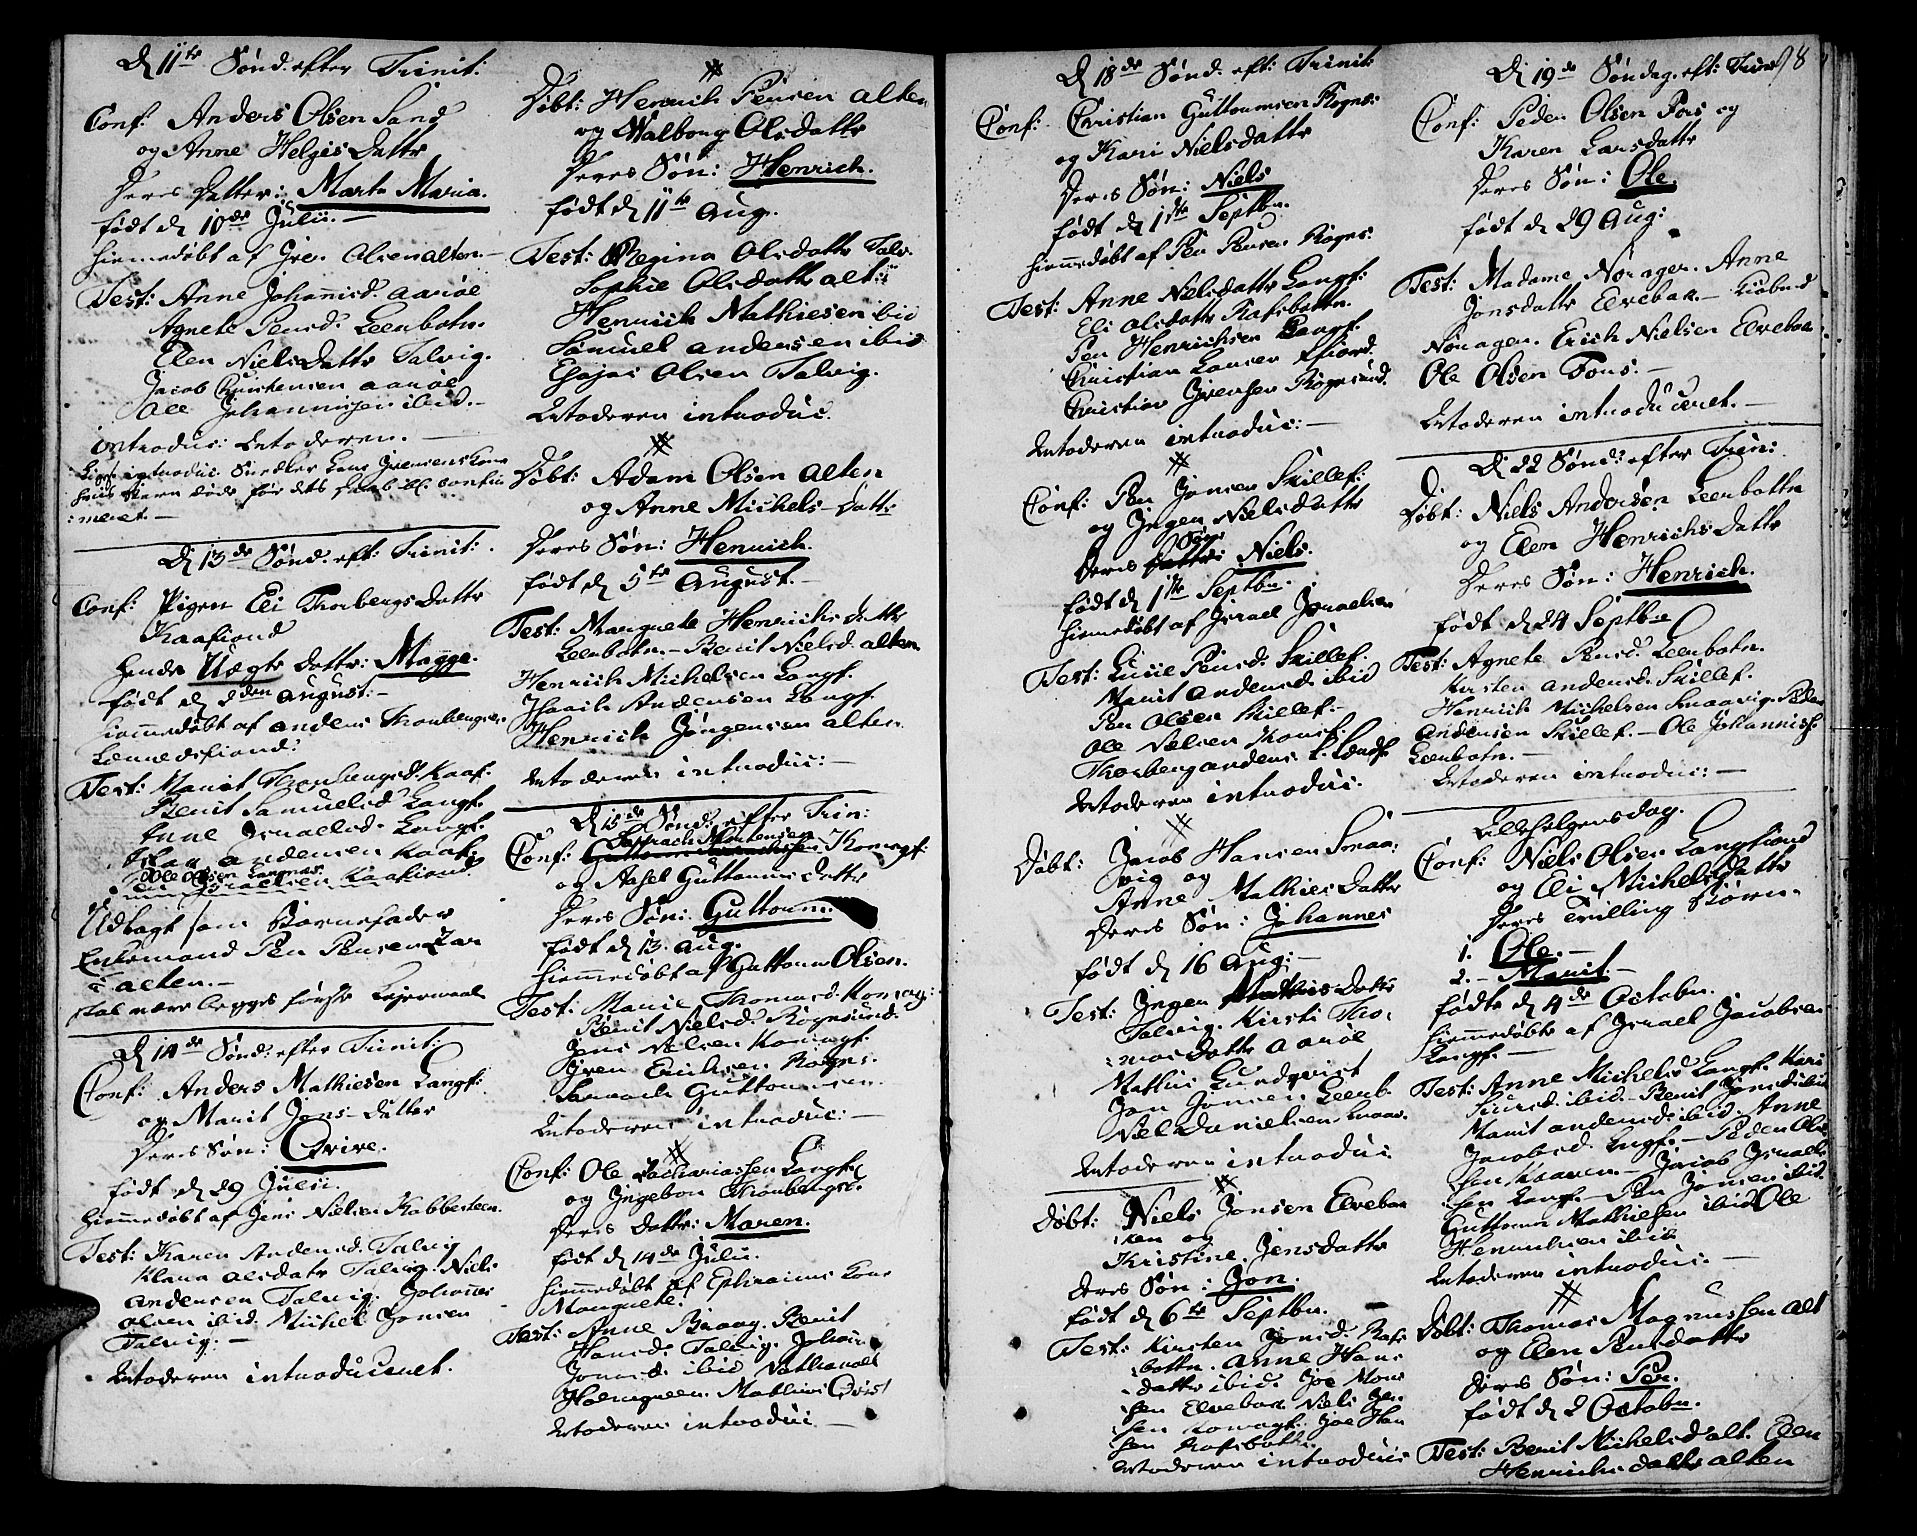 D 11te Sønd. efter Trinit:
Conf: Anders Olsen Sand
og Anne HelgesDattr
Deres Datter: Marta Maria.
født d 10de Julii. —
hiemmedøbt af Iver Olsen alten. —
Test: Anne Johannisd. Aarøe
Agnete Persd. Leerbotn.
Elen NielsDattr Talvig.
Jacob Christensen aarøe
Ole Johannissen ibid. —
introduc: Kstoderen. —
:meret. —
D 13de Sønd. eft: Trinit:
Conf: Pigen Eli ThorbergsDattr
Kaafiord
hendes Uægte Dattr: Magge.
født d 2den August: —
hiemmedøbt af Anders Thorbergsen
Test: Marit Thorbergsd. Kaaf.
Berit Samuelsd Langf.
Anne Israelsd. Langf.
Andersen Kaaf.
Ole Olsen Langnæs
Per Israelsen Kaafiord
Udlagt som Barnefader
Enkemand Per Persen
i alten. —
skal være begges første Leiermaal
D 14de Sønd: efter Trinit:
Conf: Anders Mathiesen Langf:
og Marit Jons-Datter
Deres Søn: Qvive.
født d 29 Julii.
hiemmedøbt af Jens Nielsen Kobbersteen.
Test: Karen Andersd. Talvig
Klara Olsdatr Talvig. Niels
Andersen Talvig. Johannes
Olsen ibid. Michel Jonsen
Talvig. —
Kstoderen introduceret.
#
Døbt: Henrich Persen alten
og Walborg Olsdattr
Deres Søn: Henrich.
født d 11te Aug.
Test: Regina Olsdattr Talv.
Sophie Olsdattr alt:
Henrich Mathiesen ibid
Samuel Andersen ibid
Esajas Olsen Talvig.
Kstoderen introduc.
#
Døbt: Adam Olsen alten
og Anne Michels-Datt:
Deres Søn: Henrich.
født d 5te August. —
Test: Margrete HenrichsDattr
Leerbotn. — Berit Nielsd. alten.
Henrich Michelsen Langf.
Isach Andersen Langf.
Henrich Jørgensen alten
Kstoderen introduc: —
D 15de Sønd: efter Trin:
Conf: Mortensen Korsgf:
og Aasel GuttormsDattr
Deres Søn: Guttorm.
født d 13. Aug.
hiemmedøbt af Guttorm Olsen.
Test: Marit Thomasd. Korsgf:
Berit Nielsd. Rognsund.
Jens Nielsen Korsgf.
Iver Erichsen Rogns.
Guttormsen.
Kstoderen introduc: —
#
Conf: Ole Zachariassen Langf.
og Ingebor Thorbergsd.
Deres Dattr: Maren.
født d 14de Julii.
hiemmedøbt af Ephraims Kone
Margrete.
Test: Anne Braag. Berit
Hansd. Talvig. Johan
Jonsd. ibid Nathanael
Holmgreen. Mathias Qvist
Kstoderen introduc —
98
D 18de Sønd. eft: Trinit:
Conf: Christian Guttormsen Rogns:
og Kari Nielsdattr
Deres Søn: Niels
født d 1ste Septbr.
hiemmedøbt af Per Persen Rogns:
Test: Anne Nielsdattr Langf:
Eli Olsdattr Rafsbotn.
Per Henrichsen Langf.
Christian Larsen Kfiord.
Christian Iversen Rognsund.
Kstoderen introduc: —
#
Conf: Per Jonsen Skillef:
og Inger NielsDattr
Søn
Deres Dattr: Niels.
født d 1ste Septbr.
hiemmedøbt af Israel Israelsen
Test: Lucie Persd. Skillef.
Marit Andersd. ibid
Per Olsen Skillef. —
Ole Nielsen Korsf.
Kstoderen introduc.
#
Døbt: Jacob Hansen Smaa:
vig og
Anne MathiesDattr
Deres Søn: Johannes
født d 16 Aug: —
Test: Inger MathisDattr
Talvig. Kirsti Tho:
:masDattr Aarøe
Mathis Lundqvist
Jon Jonsen Leerb.
Niels Danielsen Smaav.
Kstoderen introduc
#
Døbt: Niels Jonsen Elveba
ken og
Kristine Jensdattr
Deres Søn: Jon.
født d 6te Septbr. —
Test: Kirsten Jonsd. Rafs
:botn. Anne Hans
:dattr ibid. Joe Mons
:sen Elvebak Niels Jen
:sen Korsgf. Joe Han
:sen Rafsbottn.
Kstoderen introduc
D 19de Søndag. eft: Trin
Conf: Peder Olsen Fors og
Karen Larsdattr
Deres Søn: Ole.
født d 29 Aug:
Test: Madame Norager. Anne
Jonsdattr Elvebak. —
Norager. Erich Nielsen Elvebak
Ole Olsen Fors. —
Kstoderen introduceret. —
D 22 Sønd: efter Trin:
Døbt: Niels Andersen Leerbottn
og Elen HenrichsDattr
Deres Søn: Henrich.
født d 24 Septbr
Test: Agnete Persd. Leerbotn.
Kirsten Andersd. Skillef.
Henrich Michelsen Smaavig. Peder
Andersen Skillef. — Ole Johannisf.
Leerbotn. —
Kstoderen introduc: —
Allehelgensdag.
Conf: Niels Olsen Langfiord
og Eli MichelsDattr
Deres Tvilling Børn.
1. Ole. —
2. — Marit. —
fødte d 4de Octobr.
hiemmedøbte af Israel Jacobsen
Langf. —
Test: Anne Michelsd Langf. Kari
Siursd. ibid. — Berit Jonsd ibid
Marit Andersd ibid. Anne
Jacobsd. Langf. — Peder Ol
sen Kaaven. — Jacob Israel
sen Langf. — Per Jonsen ibid.
Guttorm Mathiesen ibid Ole
Henrichsen ibid
Kstoderen introduc. —
#
Døbt: Thomas Magnussen alt
og Elen Persdattr
Deres Søn: Per.
født d 2 Octobr.
Test: Berit Michelsd alt. Elen
Henrichsdattr alten